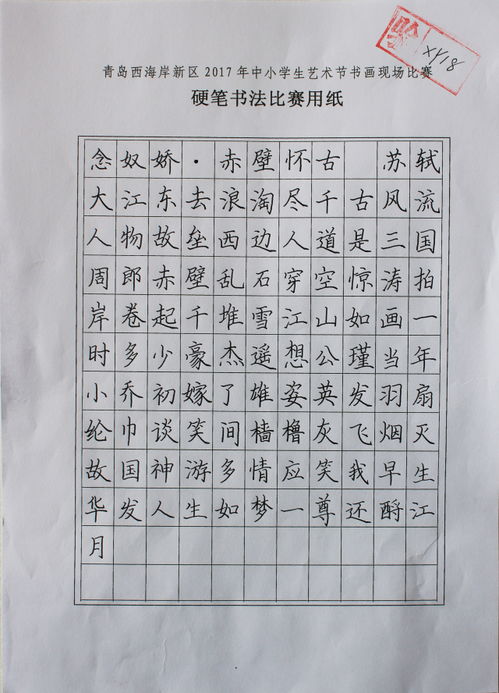 XY18
青岛西海岸新区2017年中小学生艺术节书画现场比赛
硬笔书法比赛用纸
念奴娇·赤壁怀古 苏轼
大江东去浪淘尽千古风流
人物故垒西边人道是三国
周郎赤壁乱石穿空惊涛拍
岸卷起千堆雪江山如画一
时多少豪杰遥想公瑾当年
小乔初嫁了雄姿英发羽扇
纶巾谈笑间樯橹灰飞烟灭
故国神游多情应笑我早生
华发人生如梦一尊还酹江
月